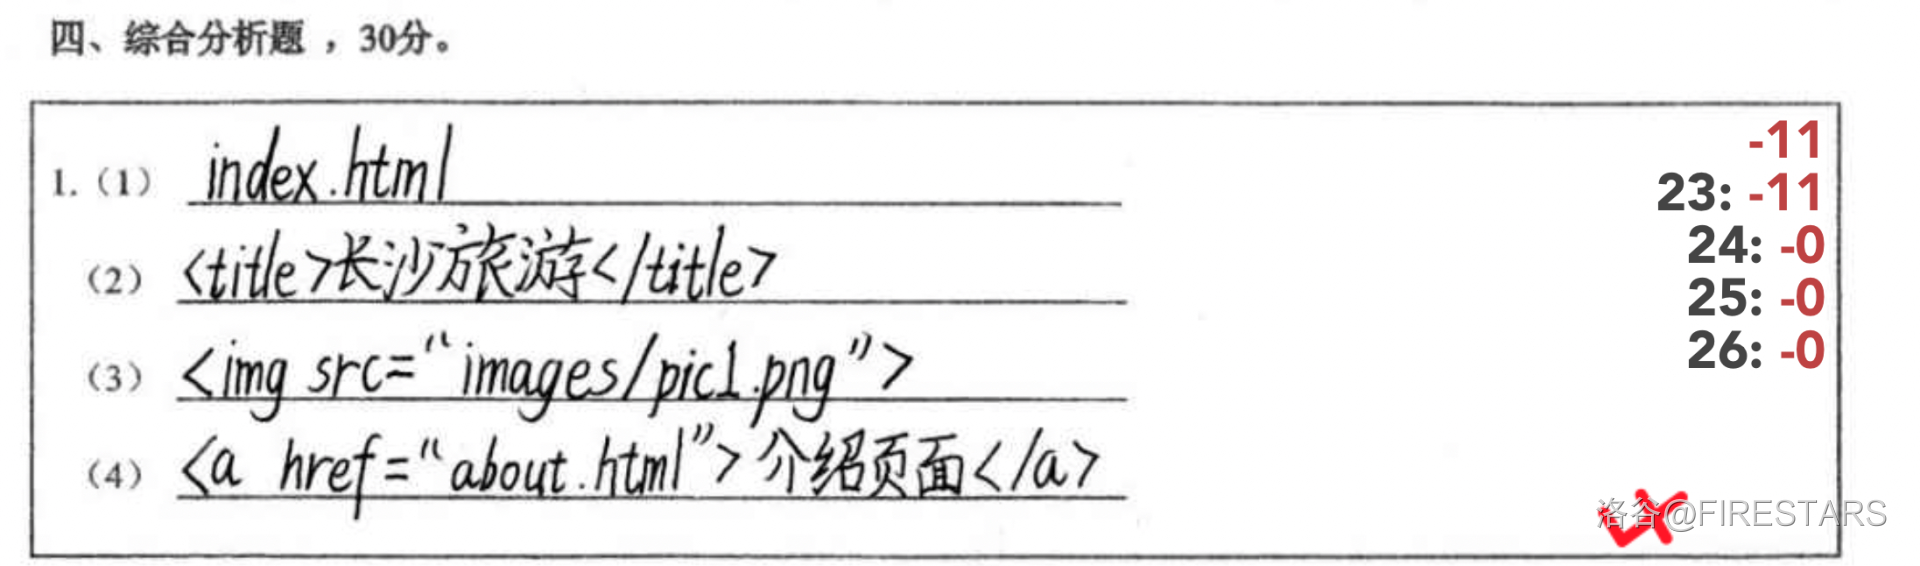 四、综合分析题，30分。
-11
1.（1） index.html
23: -11
24: -0
（2） <title>长沙旅游</title>
25: -0
26: -0
（3） <img src="images/pic1.png">
（4） <a href="about.html">介绍页面</a>
洛谷@FIRESTARS